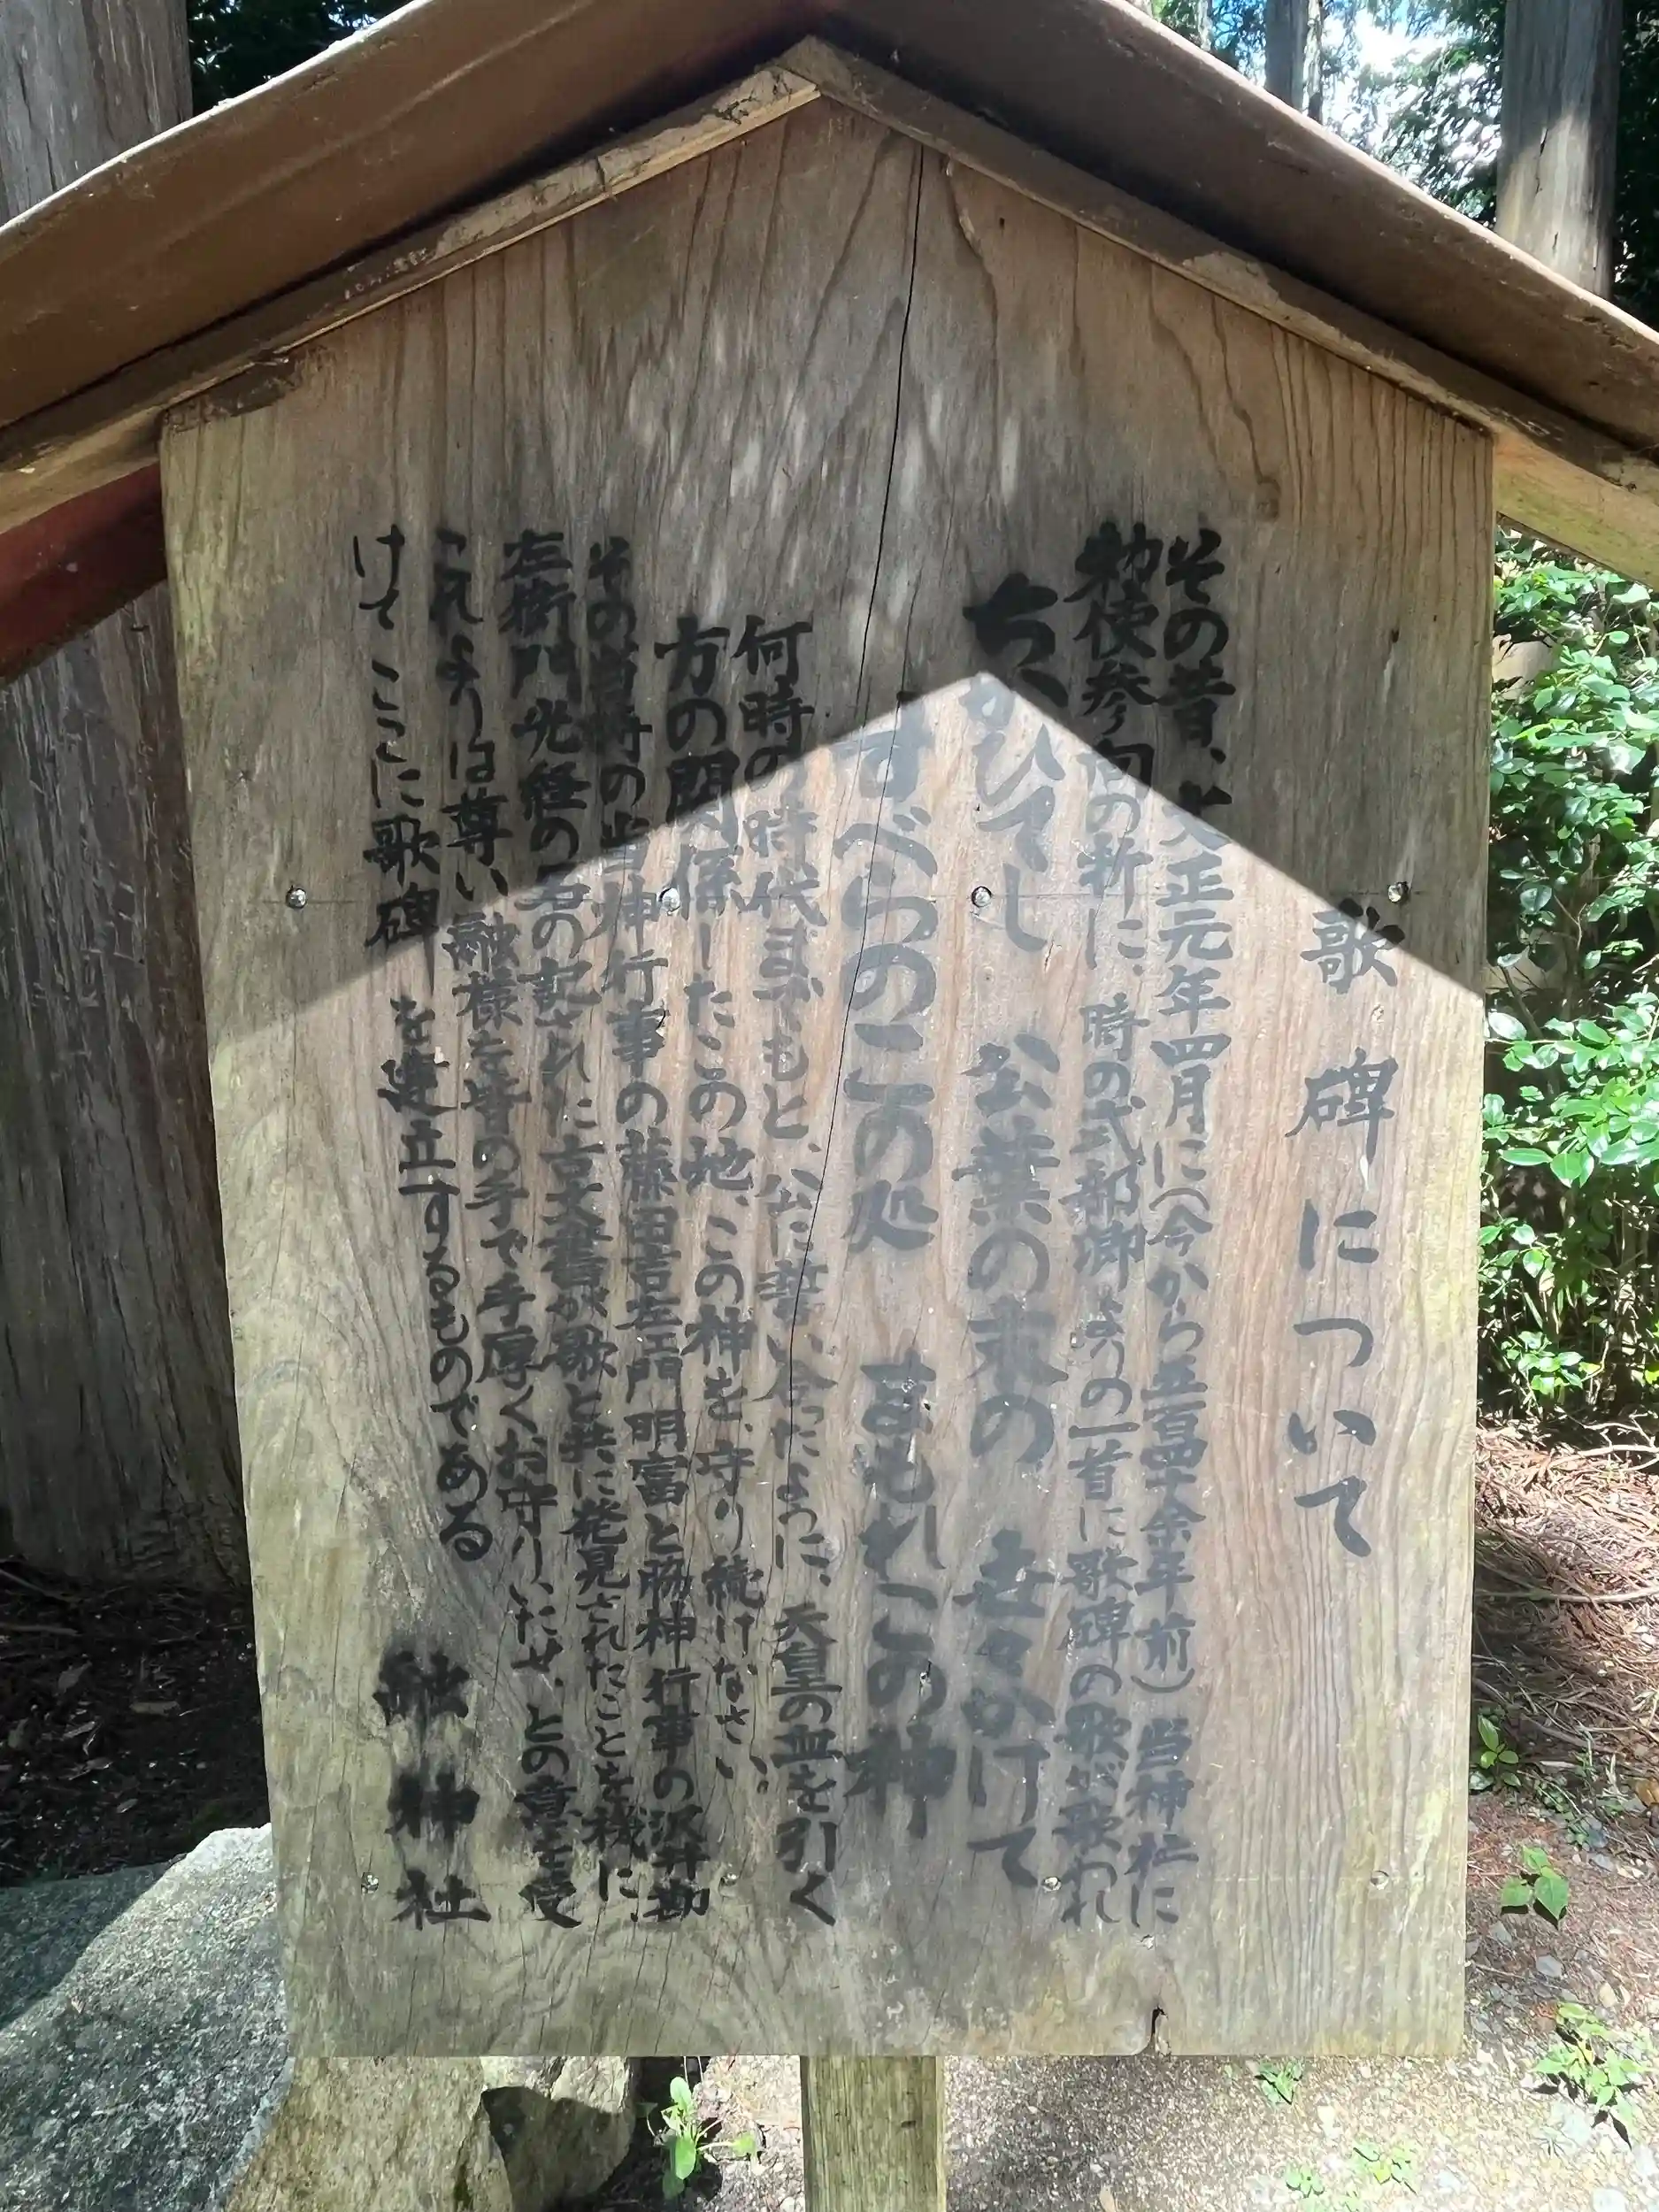 歌碑について
その昔、天正元年四月に(今から五百四十余年前)当神社に
勅使参向の折に、時の式部卿よりの一首に歌碑の歌が歌われ
ちかひてし 公葉の末の 世々かけて
すべらのこの処 まもれこの神
何時の時代まででもと、公に誓い合ったように、天皇の血を引く
方の関係したこの地、この神を、守り続けなさい。
その当時の当神行事の藤田吉左エ門明富と脇神行事の沢井勘
左衛門光経の君の記された古文書が歌と共に発見されたことを機に、
これよりは尊い融様を皆の手で手厚くお守りいたせ、との意を受
けてここに歌碑を建立するものである
融神社